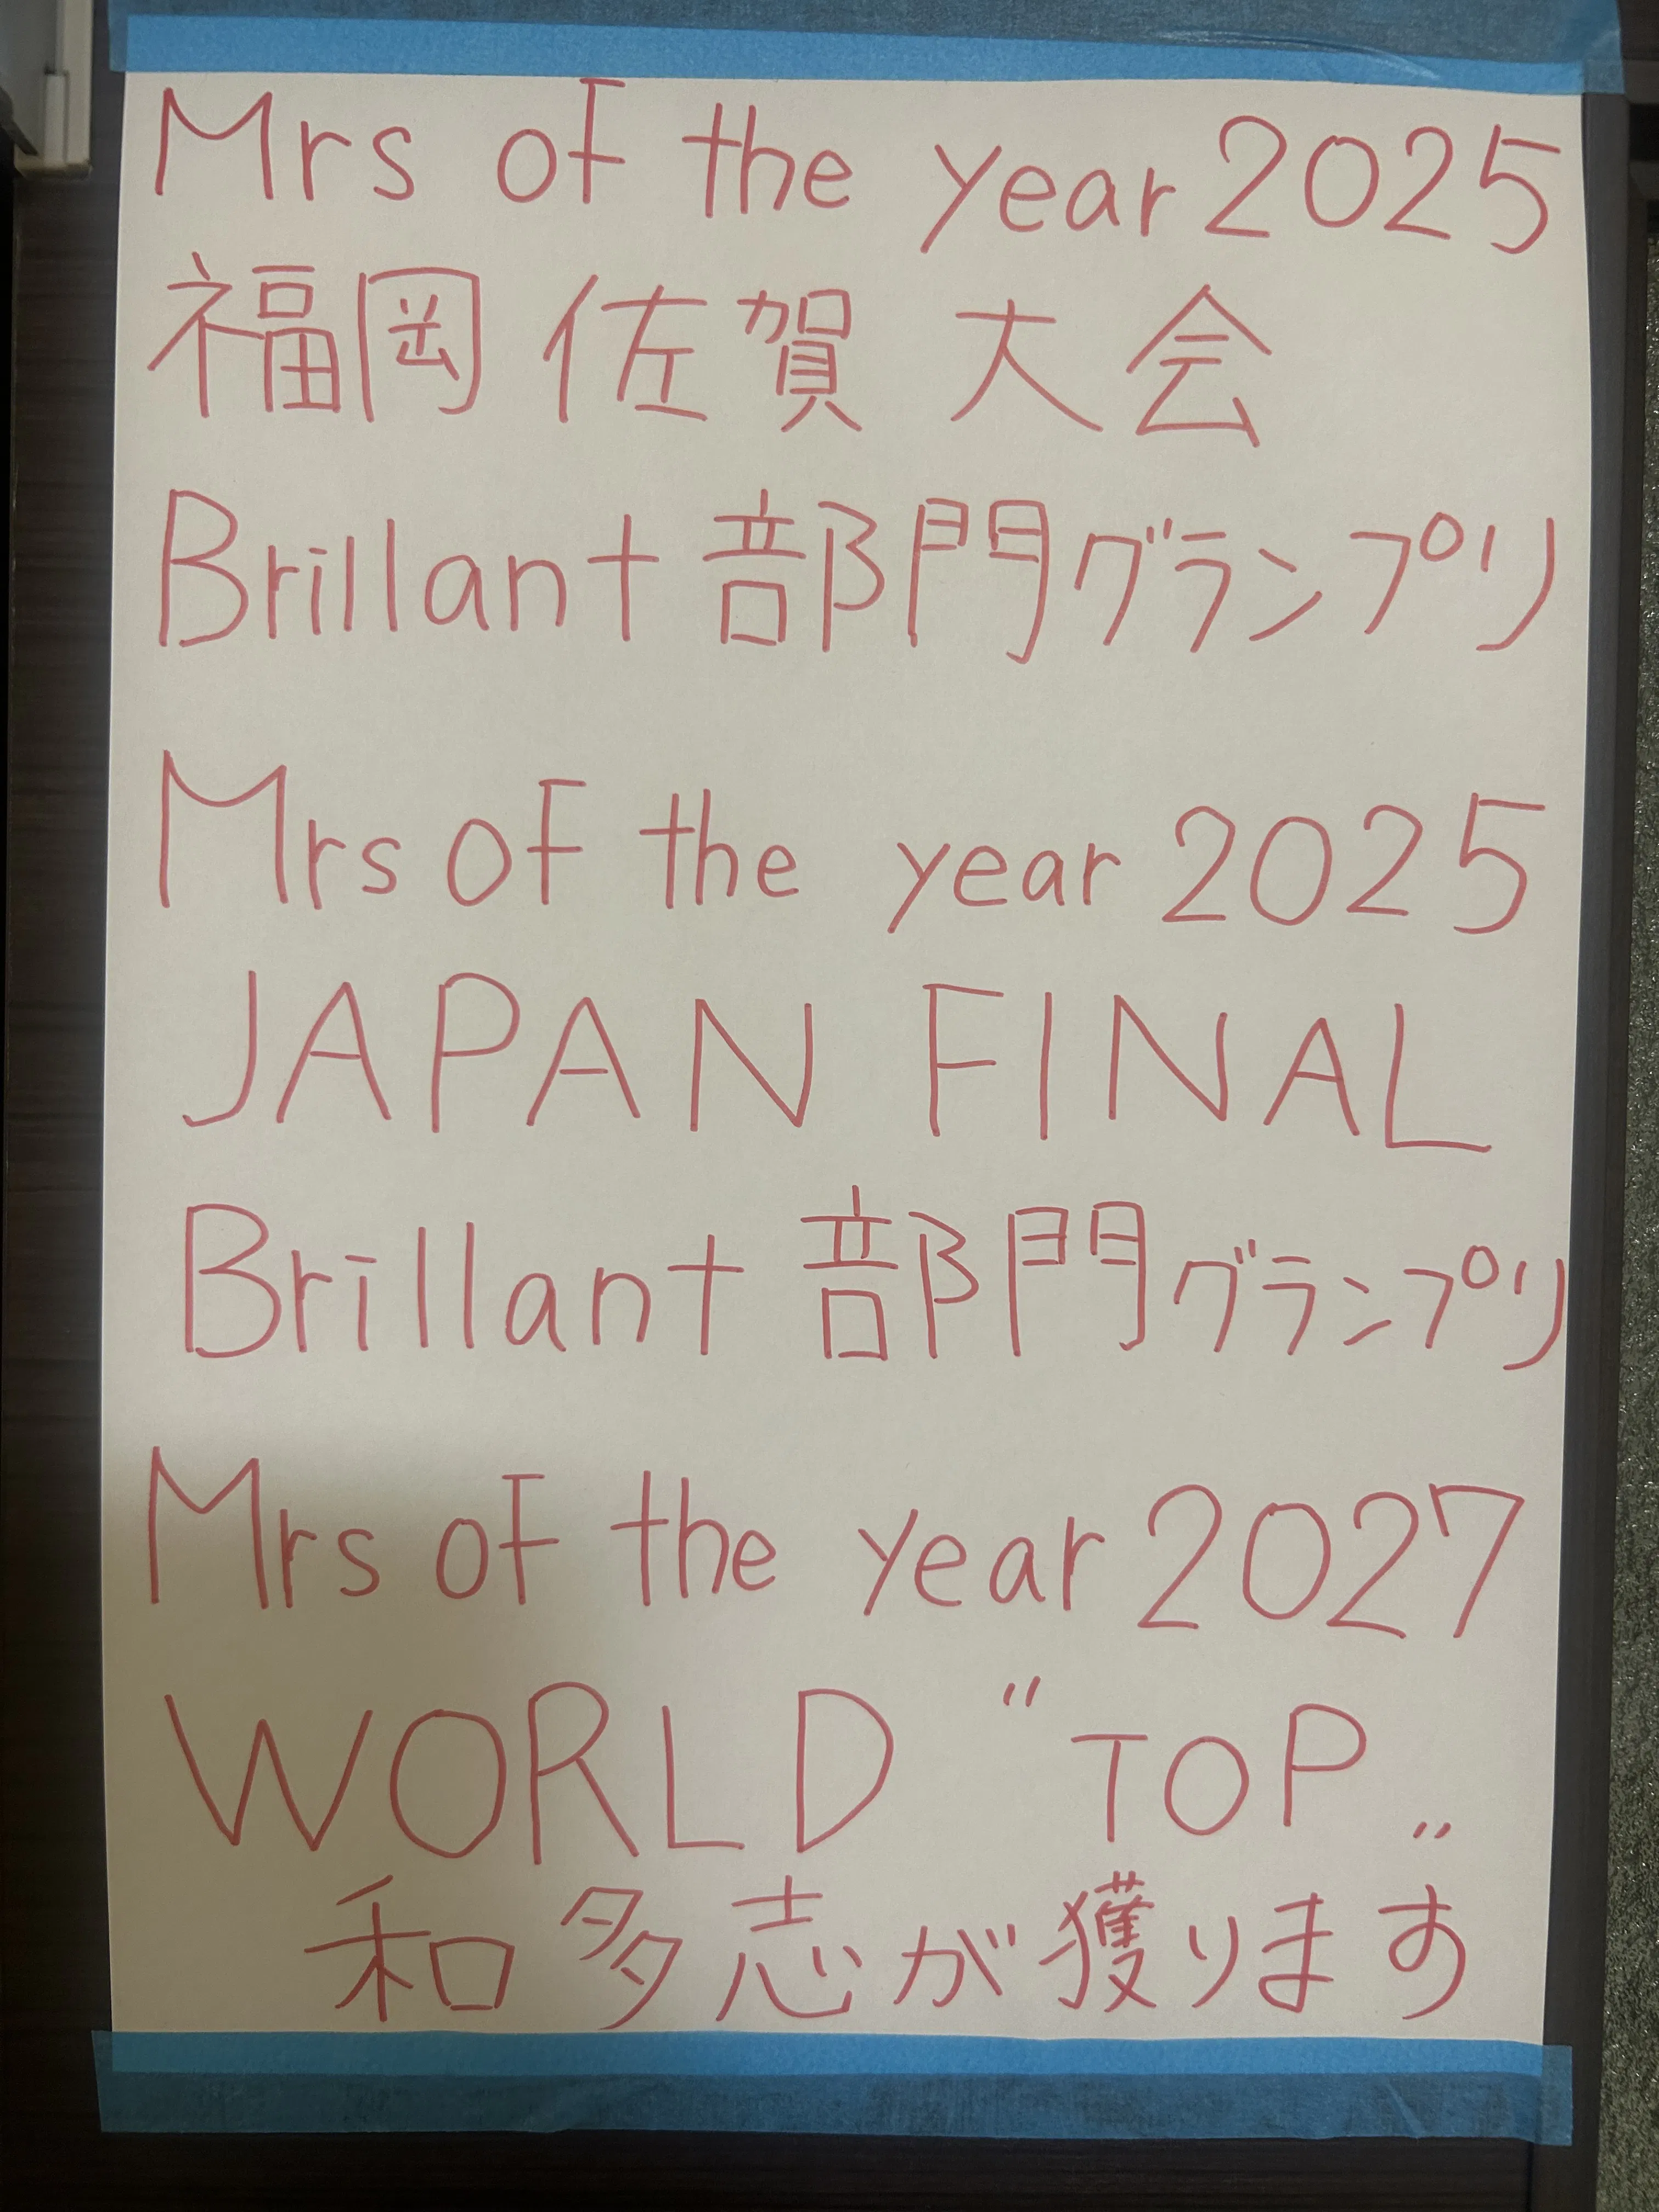 Mrs of the year 2025
福岡 佐賀 大会
Brillant 部門グランプリ
Mrs of the year 2025
JAPAN FINAL
Brillant 部門グランプリ
Mrs of the year 2027
WORLD "TOP„
和多志が獲ります